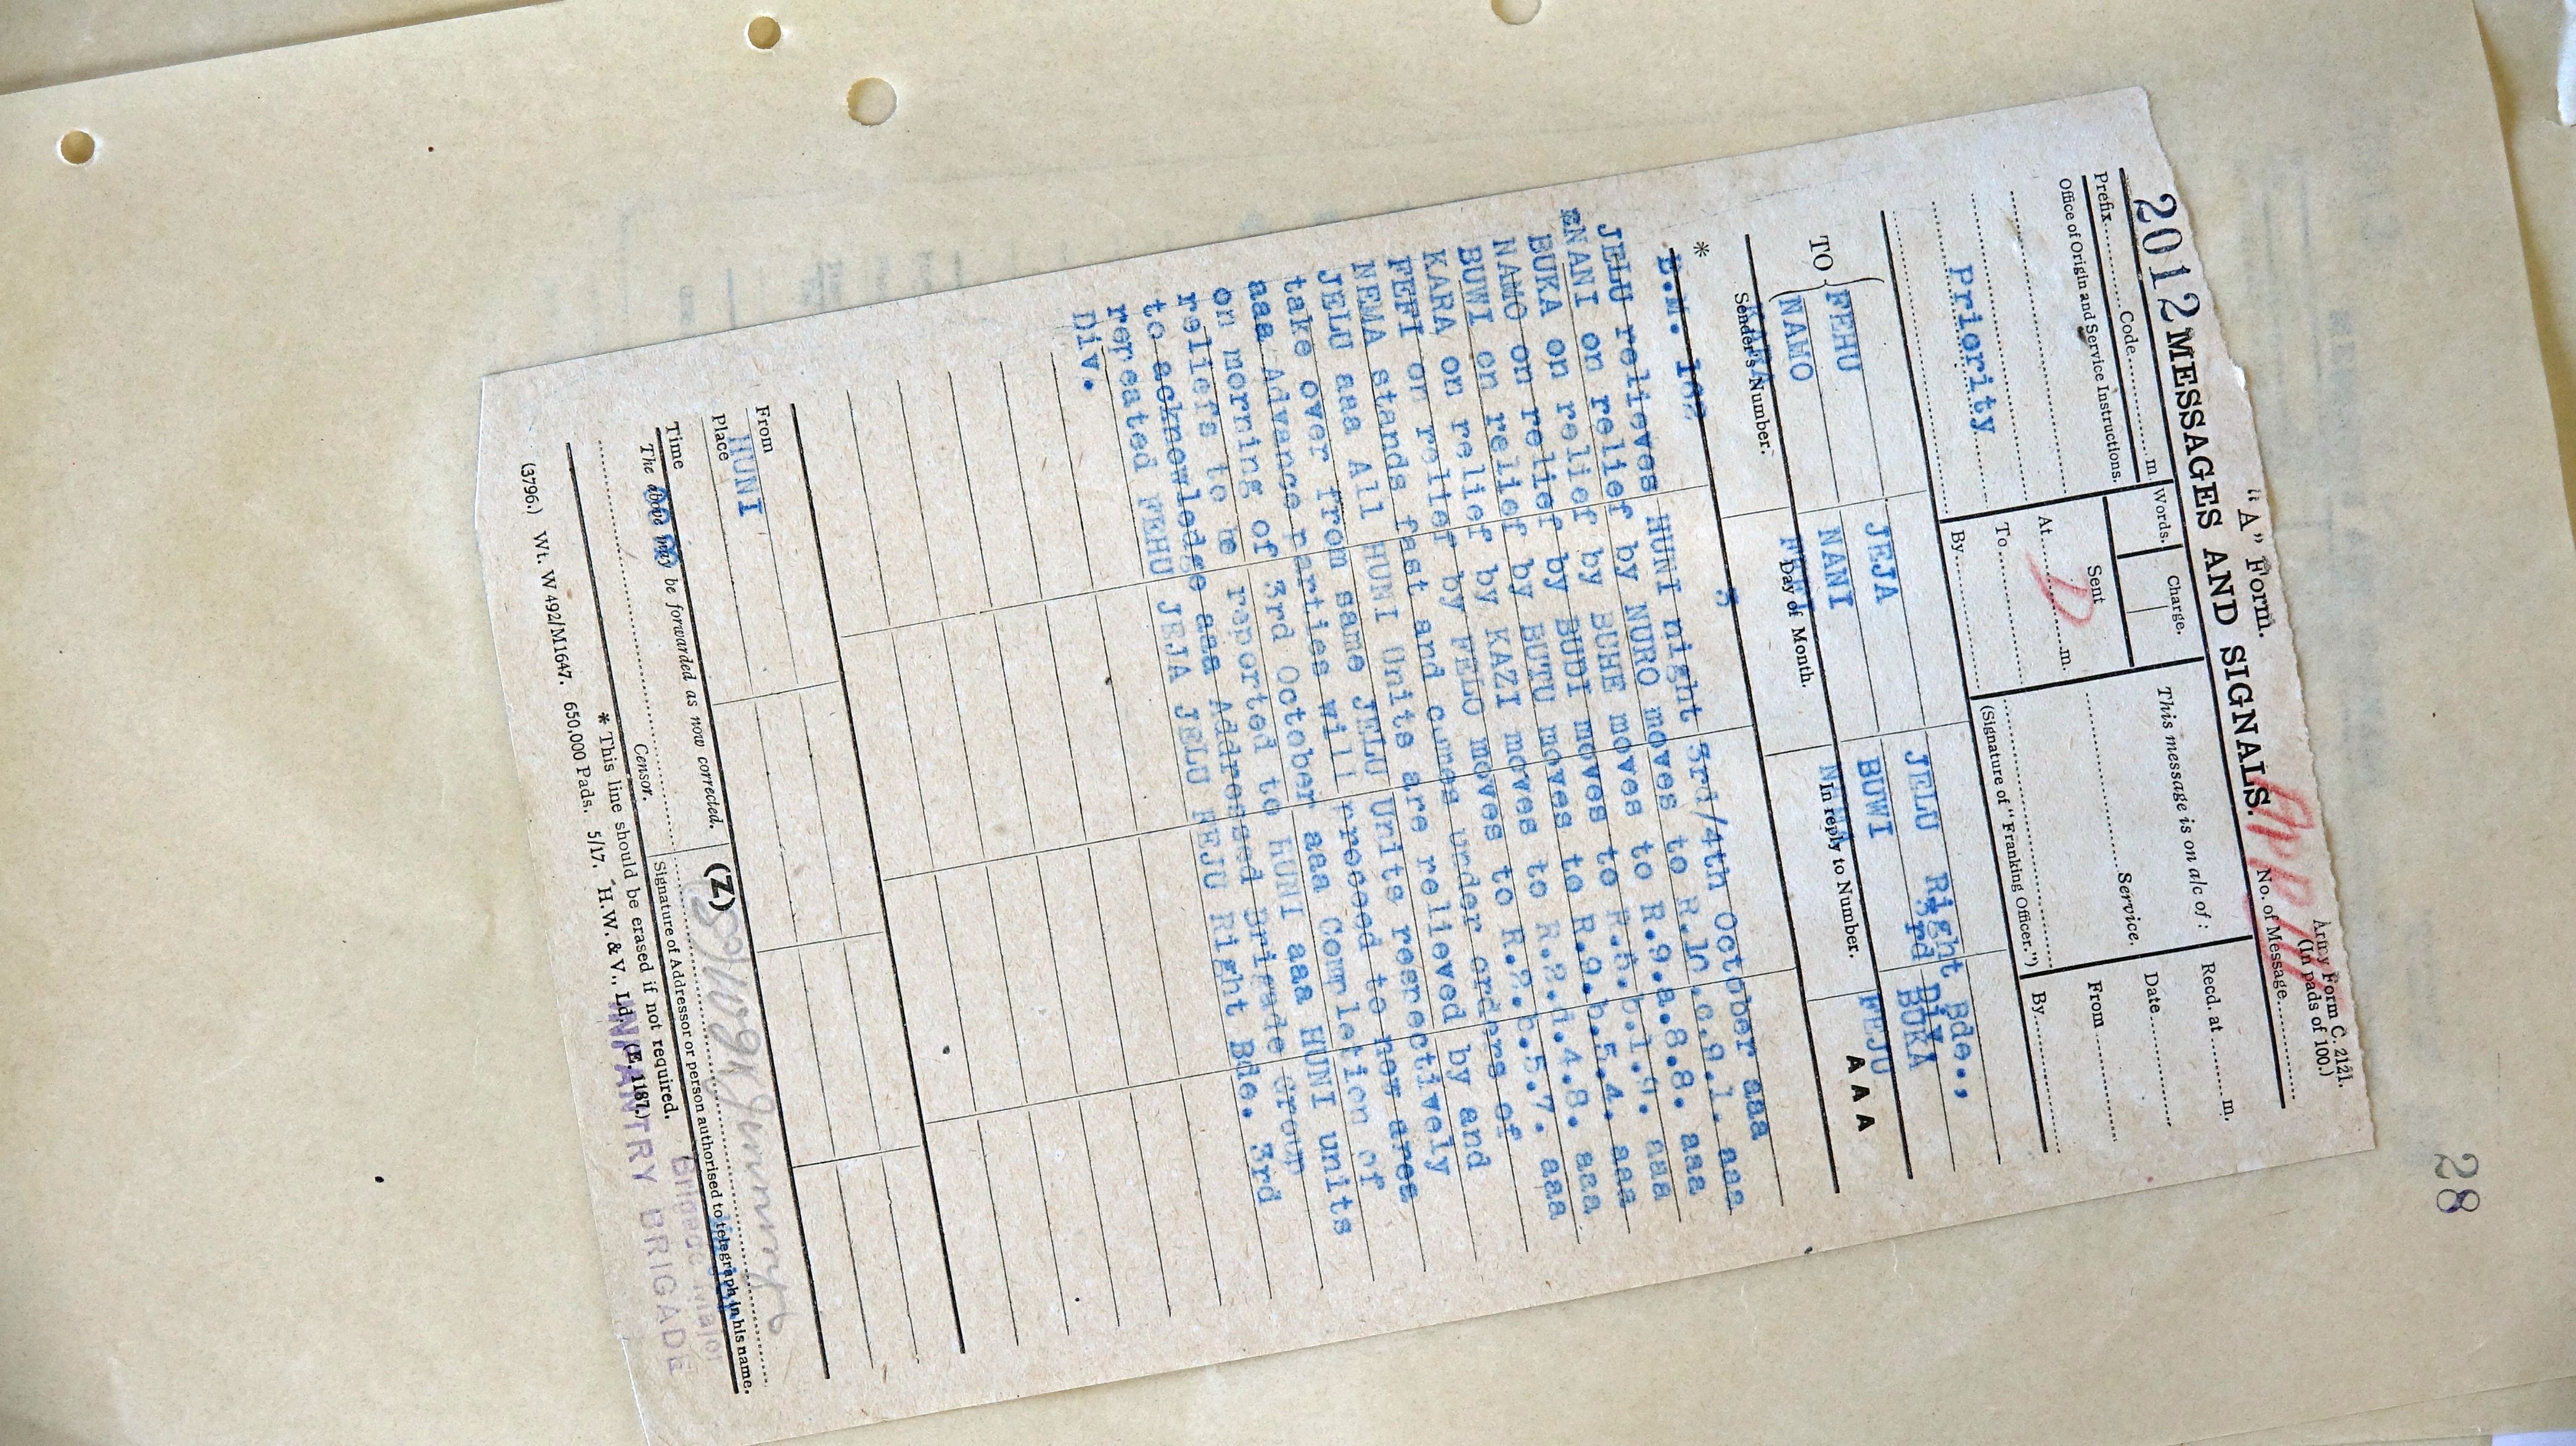 28
"A" Form.
Army Form C. 2121.
(In pads of 100.)
2012 MESSAGES AND SIGNALS.
No. of Message
Prefix Code m.
Words.
Charge.
This message is on a/c of:
Recd. at m.
Office of Origin and Service Instructions.
Sent
Service.
Date
Priority
At m.
From
To
By
(Signature of "Franking Officer.")
By
TO
FEHU
JEJA
JELU Right Bde.,
3rd Div.
NAMO
NANI
BUWI
BUKA
KARA
FEJU
Sender's Number.
Day of Month.
In reply to Number.
AAA
*
3
JELU relieves HUNI night 3rd/4th October aaa
NANI on relief by NURO moves to R.10.c.9.1. aaa
BUKA on relief by BUHE moves to R.9.a.8.8. aaa
NAMO on relief by BUDI moves to aaa
BUWI on relief by BUTU moves to R.9.b.5.4. aaa
KARA on relief by KAZI moves to aaa
on relief by FELO moves to aaa
NEMA stands fast and comes under orders of
JELU aaa All HUNI Units are relieved by and
take over from same JELU Units respectively
aaa Advance parties will proceed to new area
on morning of 3rd October aaa Completion of
reliefs to be reported to HUNI aaa HUNI units
to acknowledge aaa Addressed Brigade group
repeated FEHU JEJA JELU FEJU Right Bde. 3rd
Div.
From
HUNI
Place
Time
The above may be forwarded as now corrected.
(Z)
Censor.
Signature of Addressor or person authorised to telegraph in his name.
Brigade Major
INFANTRY BRIGADE
* This line should be erased if not required.
(3796.) Wt. W 492/M1647. 650,000 Pads. 5/17. H.W. & V., Ld. (E. 1187.)